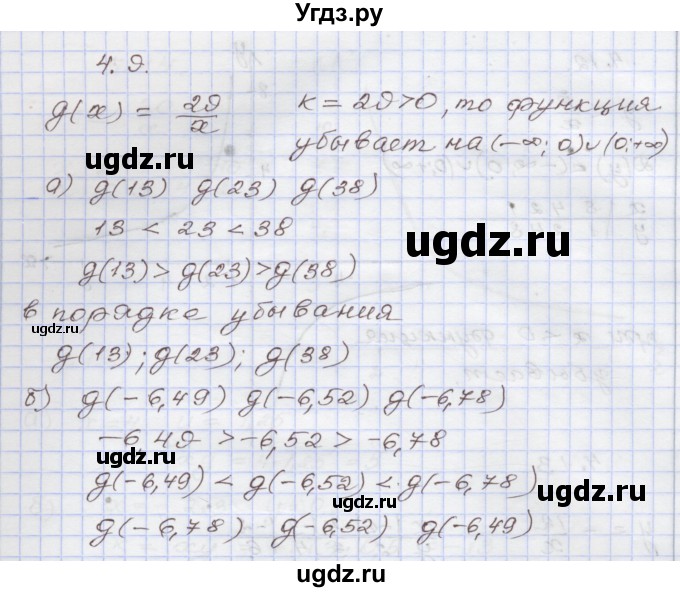 Угдз.ру
4.9.
g(x) = 29/x   k = 29 > 0, то функция
убывает на (-∞; 0) ∪ (0; +∞)
ugdz.ru
а) g(13) g(23) g(38)
13 < 23 < 38
ugdz.ru
g(13) > g(23) > g(38)
в порядке убывания
ugdz.ru
g(13); g(23); g(38)
б) g(-6,49) g(-6,52) g(-6,78)
-6,49 > -6,52 > -6,78
ugdz.ru
g(-6,49) < g(-6,52) < g(-6,78)
ugdz.ru
g(-6,78) g(-6,52) g(-6,49)
ugdz.ru
ugdz.ru